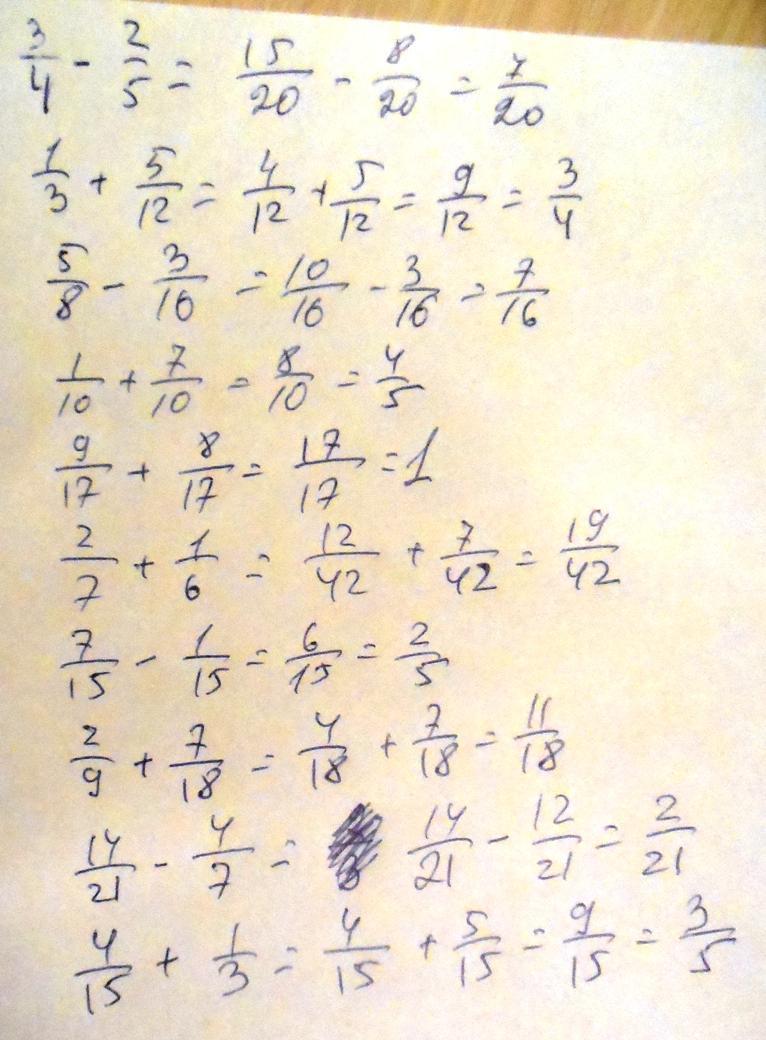 3/4 - 2/5 = 15/20 - 8/20 = 7/20
1/3 + 5/12 = 4/12 + 5/12 = 9/12 = 3/4
5/8 - 3/16 = 10/16 - 3/16 = 7/16
1/10 + 7/10 = 8/10 = 4/5
9/17 + 8/17 = 17/17 = 1
2/7 + 1/6 = 12/42 + 7/42 = 19/42
7/15 - 1/15 = 6/15 = 2/5
2/9 + 7/18 = 4/18 + 7/18 = 11/18
14/21 - 4/7 = 14/21 - 12/21 = 2/21
4/15 + 1/3 = 4/15 + 5/15 = 9/15 = 3/5